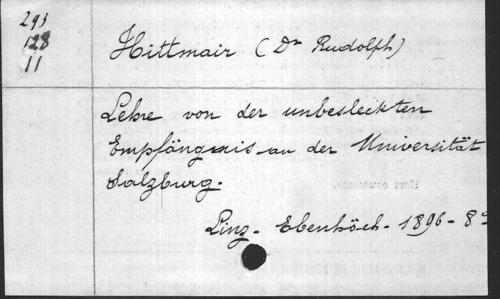 293
128
11
Hittmair (Dr Rudolph)
Lehre von der unbefleckten
Empfängnis an der Universität
Salzburg.
Linz - Ebenhöch - 1896 - 8°